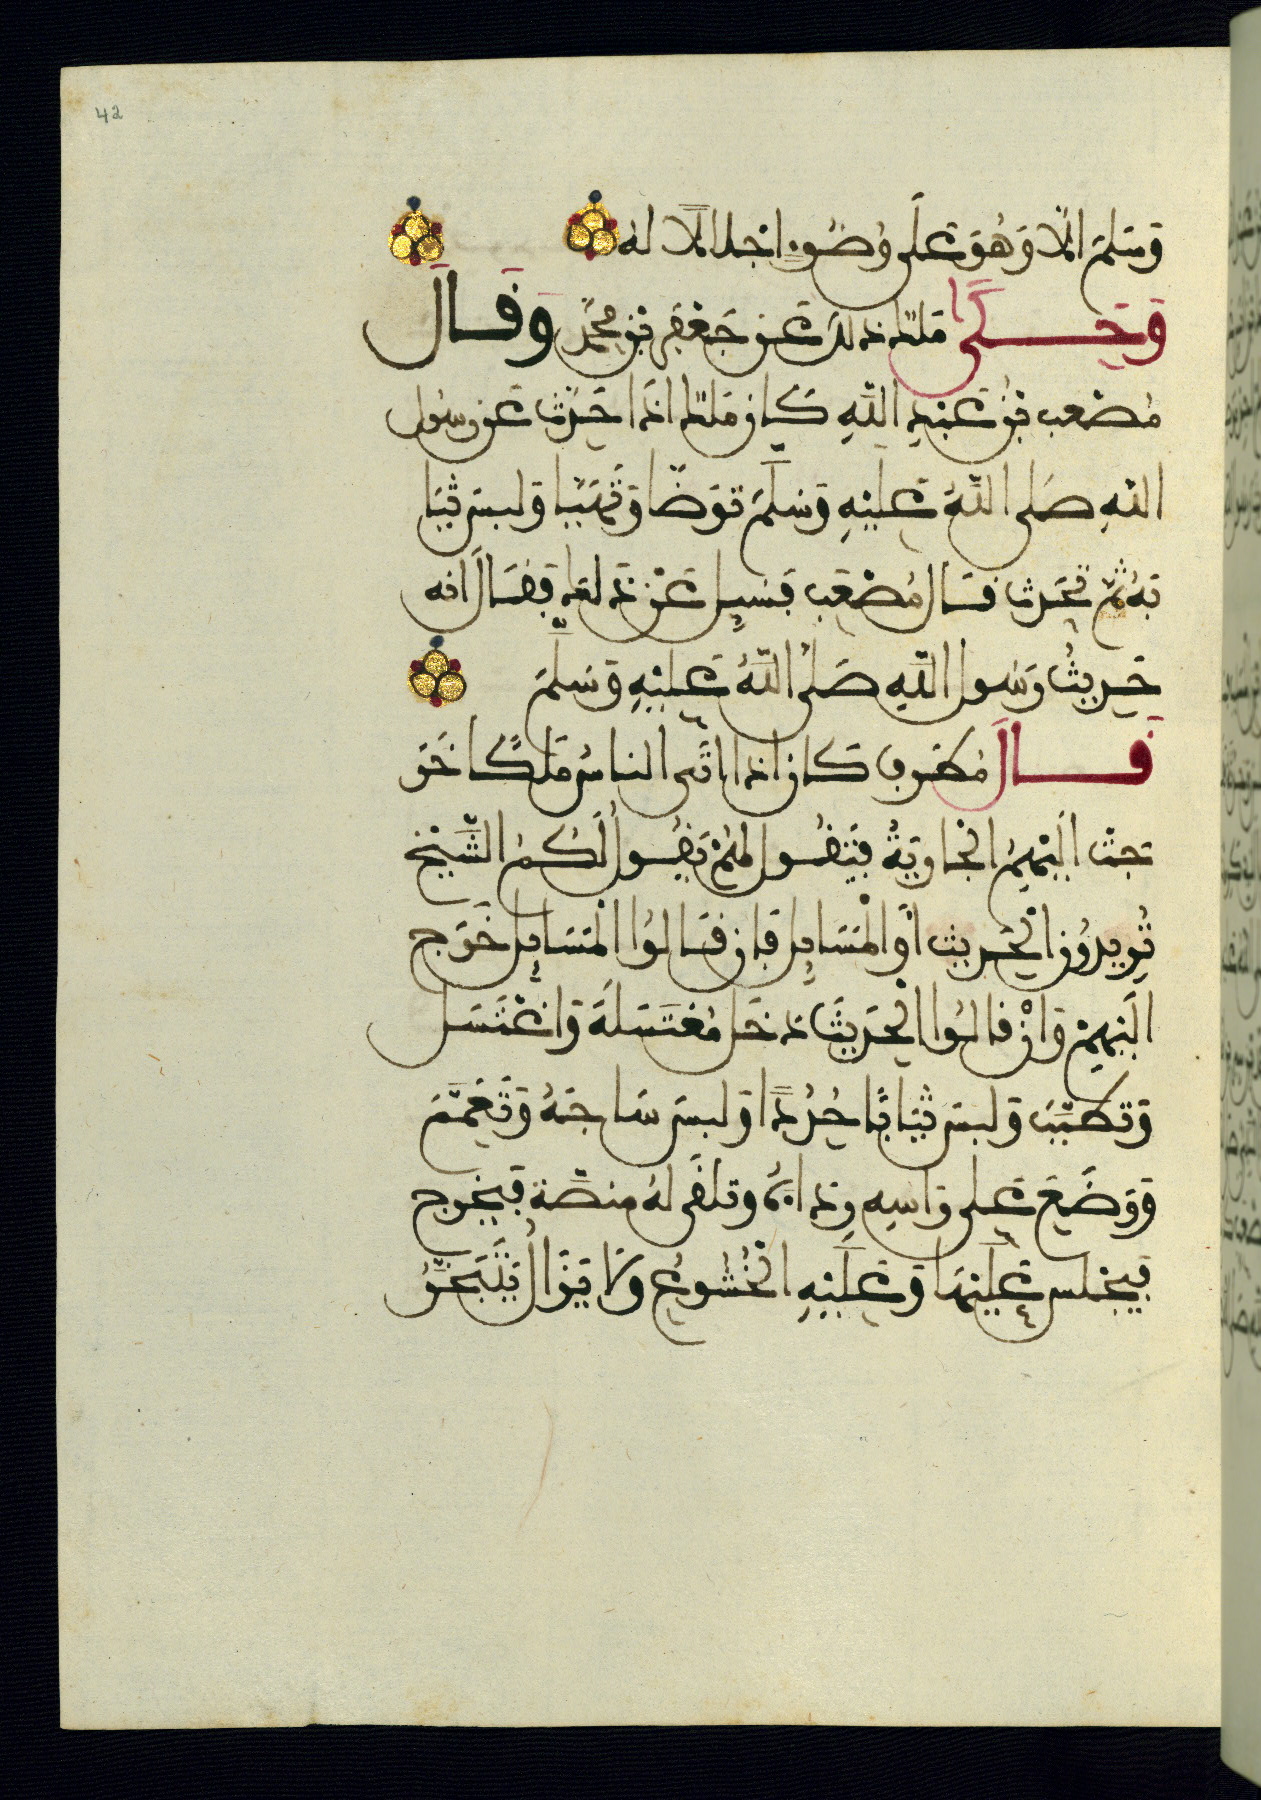 42
وَسَلَّمَ الَّا وَهُوَ عَلَى وُضُوءٍ اجْلَالًا لَهُ
وَحَكَى مَلك ذلك عَن جَعْفَر بْنِ مُحَمَّد وَقَالَ
مُصْعَب بْنُ عَبْدِ اللَّهِ كَان مَلك اذَا حَدَّث عَن رسُول
اللهِ صَلى اللَّهُ عَلَيْهِ وَسَلَّمَ تَوَضَّا وَتَهَيَّا وَلبسَ ثيَا
بَهُ ثُمَّ يُحَدث قَال مُصْعَب فَسُيِل عَنْ ذَلك فَقَالَ انه
حَدِيثُ رَسُول اللَّهِ صَلى اللَّهُ عَلَيْهِ وَسَلَّمَ
قَالَ مُطَرف كَان اذا اتَى الناسُ مَلكًا خَرَ
جَتْ الَيْهِمُ الْجَارِيَةُ فَتَقُول لهُمْ يَقُول لَكُمُ الشَّيْخ
تُرِيدُونَ الْحَدِيث أَو الْمَسَايِل فَان قَالُوا الْمَسَايِل خَرَج
الَيْهِمْ وَانْ قالُوا الْحَدِيثَ دَخَل مُغْتَسَلَهُ وَاغْتَسَل
وَتَطَيَّبَ وَلبسَ ثيَابًا جُدُدًا وَلبسَ سَاجَهُ وَتَعَمَّمَ
وَوَضَعَ عَلى رَاسِهِ رِدَاءَهُ وتلقَى لهُ منصَّة فَيَخْرج
فَيَجْلس عَلَيْهَا وَعَلَيْهِ الْخُشُوعُ وَلَا يَزَالُ يَتَبَخَّرُ